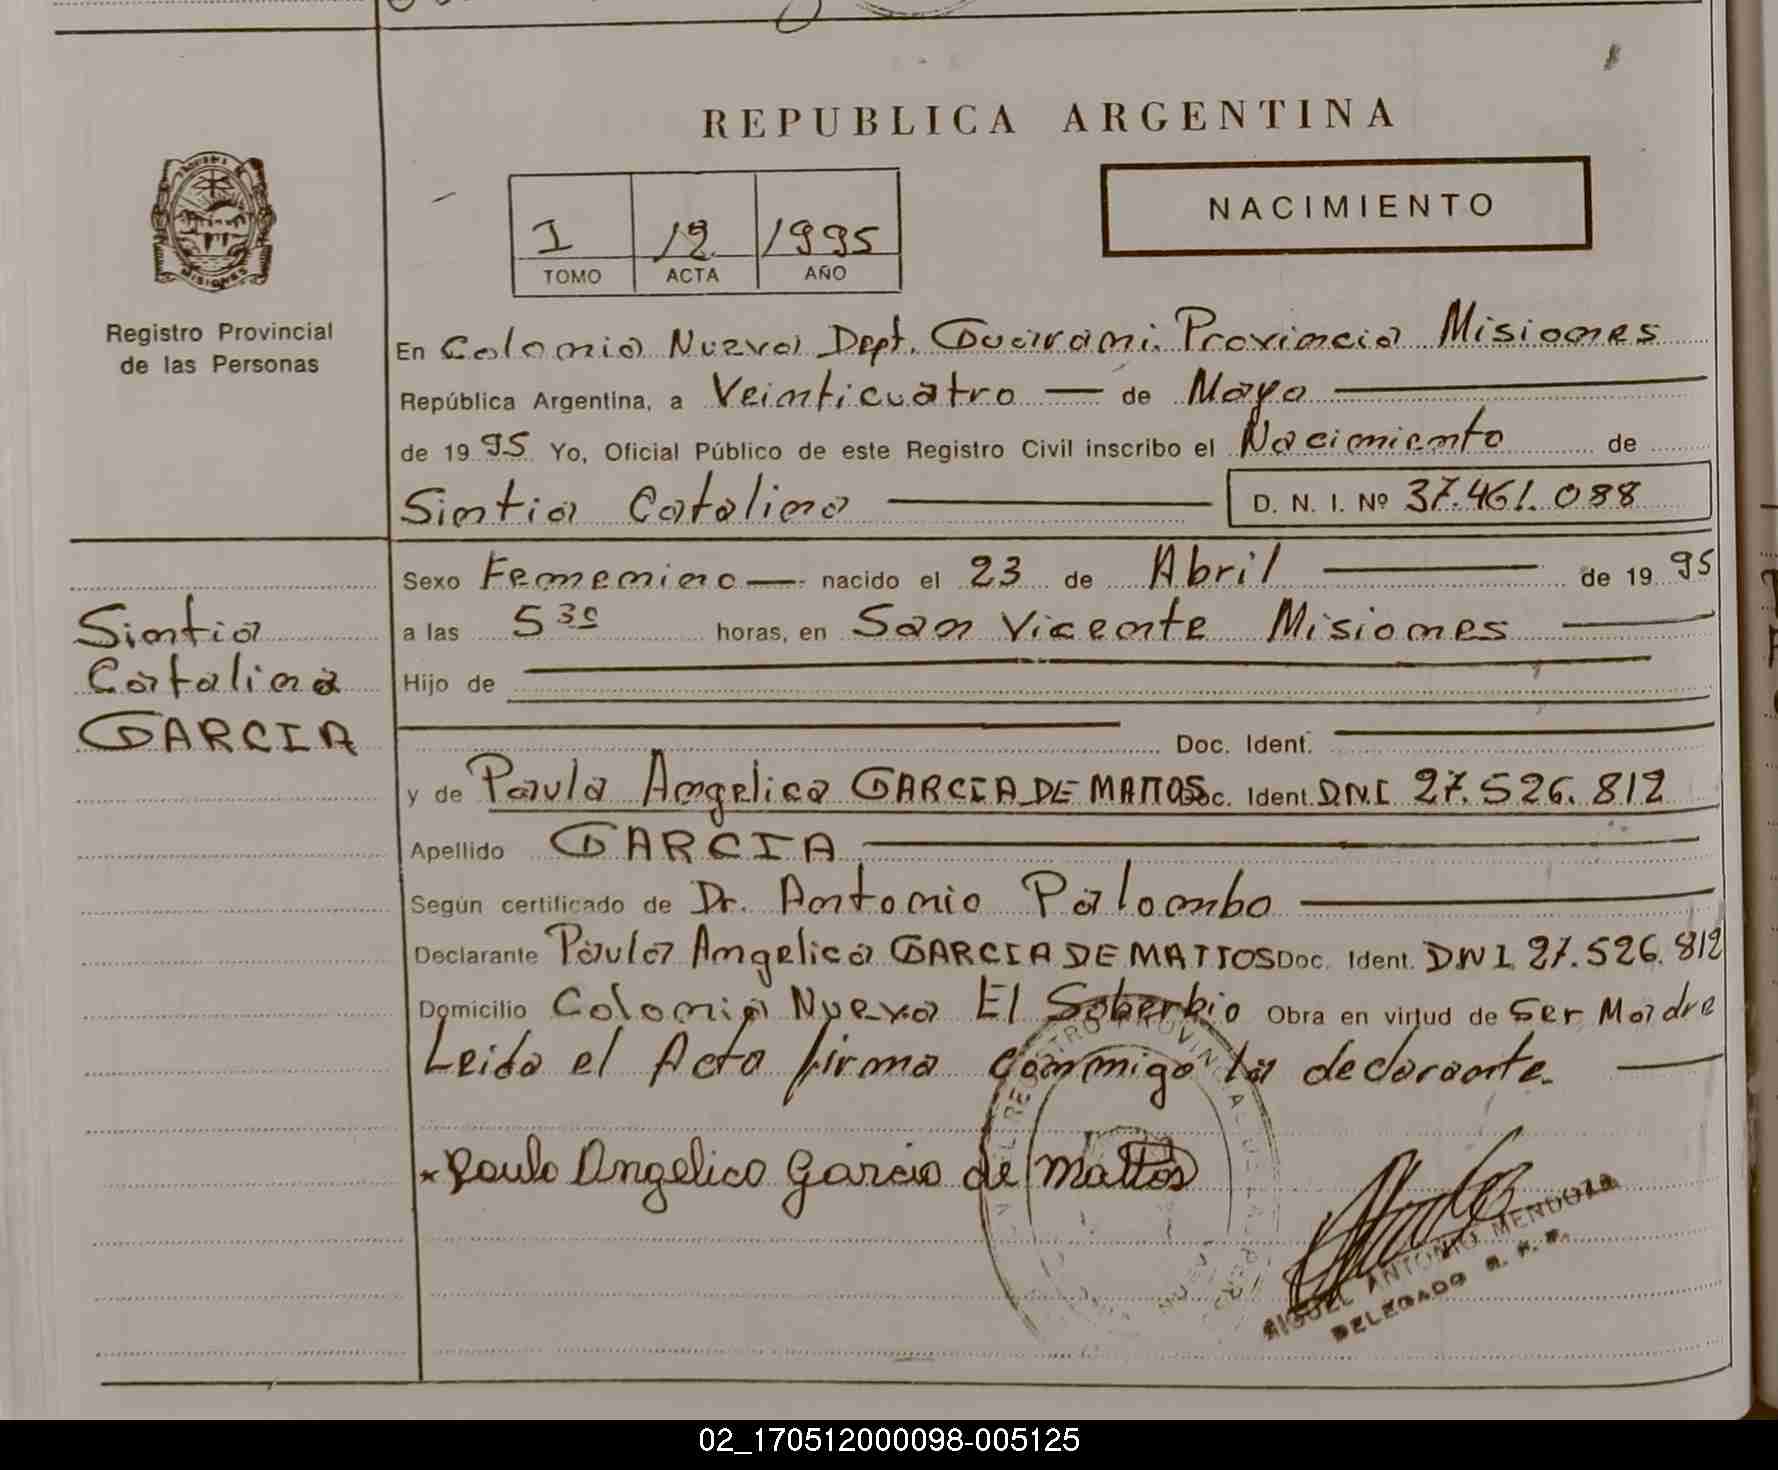 REPUBLICA ARGENTINA
NACIMIENTO
I 12 1995
TOMO ACTA AÑO
MISIONES
Registro Provincial
de las Personas
En Colonia Nueva Dept. Guarani. Provincia Misiones
República Argentina, a Veinticuatro — de Mayo
de 1995 Yo, Oficial Público de este Registro Civil inscribo el Nacimiento de
Sintia Catalina D. N. I. Nº 37.461.088
Sexo Femenino —. nacido el 23 de Abril de 1995
a las 5 30 horas, en San Vicente Misiones
Hijo de
Doc. Ident.
y de Paula Angelica GARCIA DE MATTOS Doc. Ident. D.N.I 27.526.812
Apellido GARCIA
Según certificado de Dr. Antonio Palombo
Declarante Paula Angelica GARCIA DE MATTOS Doc. Ident. DNI 27.526.812
Domicilio Colonia Nueva El Soberbio Obra en virtud de Ser Madre
Leida el Acta firma conmigo la declarante.
Sintia
Catalina
GARCIA
Paula Angelica Garcia de Mattos
MIGUEL ANTONIO MENDOZA
DELEGADO R. P. P.
02_170512000098-005125